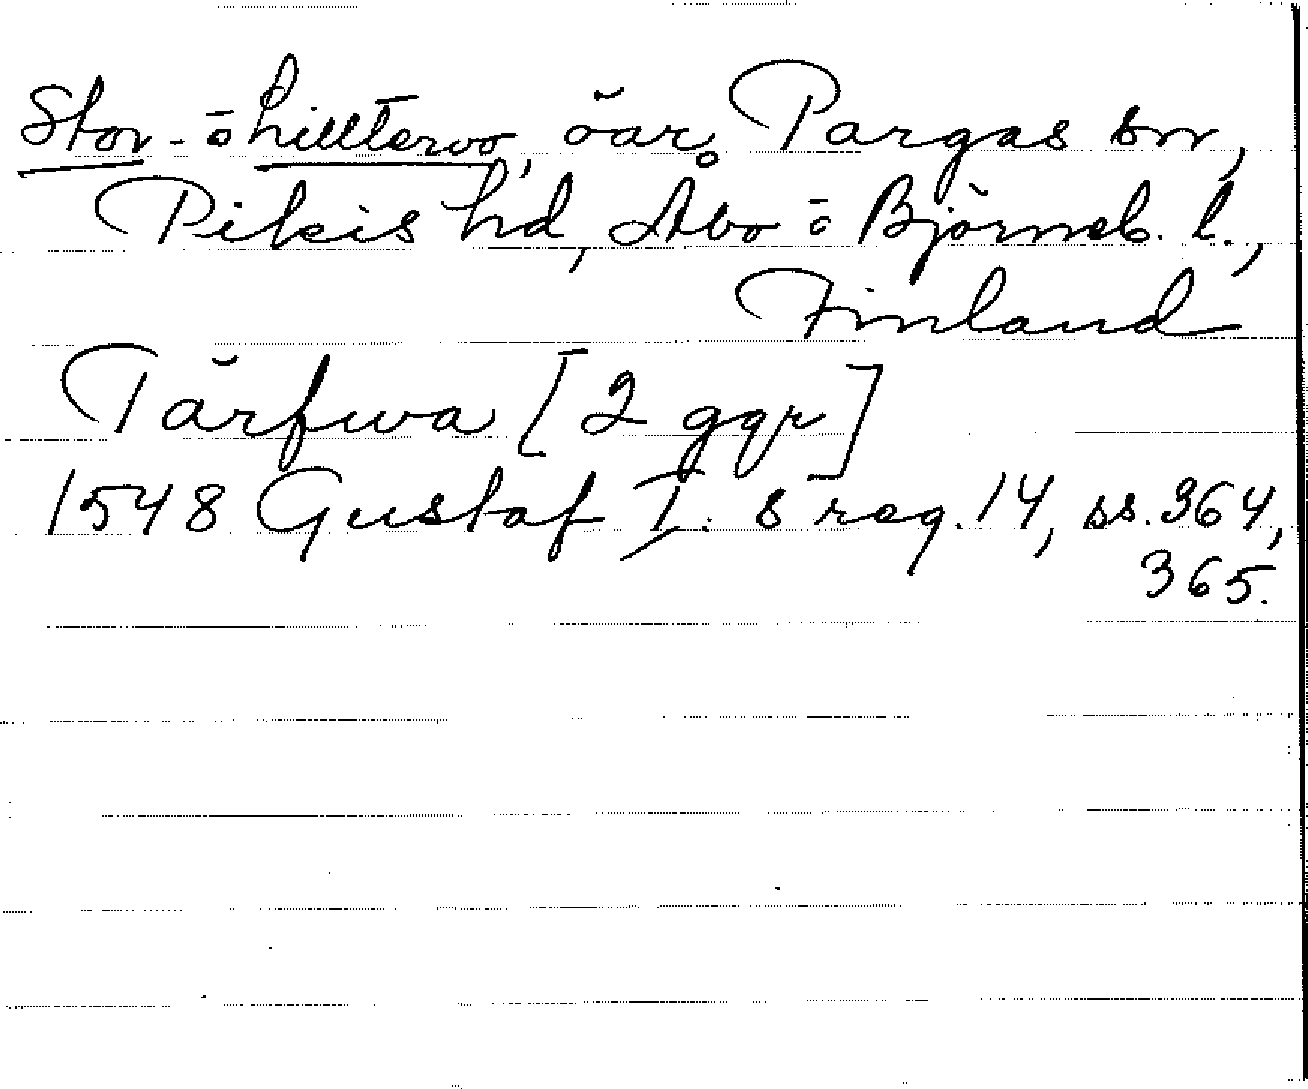 Stor- o Lilltervo, öar, Pargas sn,
Pikis hd, Åbo o Björneb. l.,
Finland
Tärfwa [2 ggr]
1548 Gustaf I:s reg. 14, ss. 364,
365.